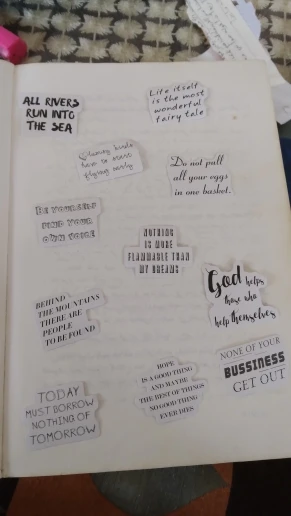 ALL RIVERS
RUN INTO
THE SEA
Life itself
is the most
wonderful
fairy tale
Clumsy birds
have to start
flying early
Do not pull
all your eggs
in one basket.
BE YOURSELF
FIND YOUR
OWN VOICE
NOTHING
IS MORE
FLAMMABLE THAN
MY DREAMS
God helps
those who
help themselves
BEHIND
THE MOUNTAINS
THERE ARE
PEOPLE
TO BE FOUND
NONE OF YOUR
BUSSINESS
GET OUT
HOPE
IS A GOOD THING
AND MAYBE
THE BEST OF THINGS
NO GOOD THING
EVER DIES
TODAY
MUST BORROW
NOTHING OF
TOMORROW